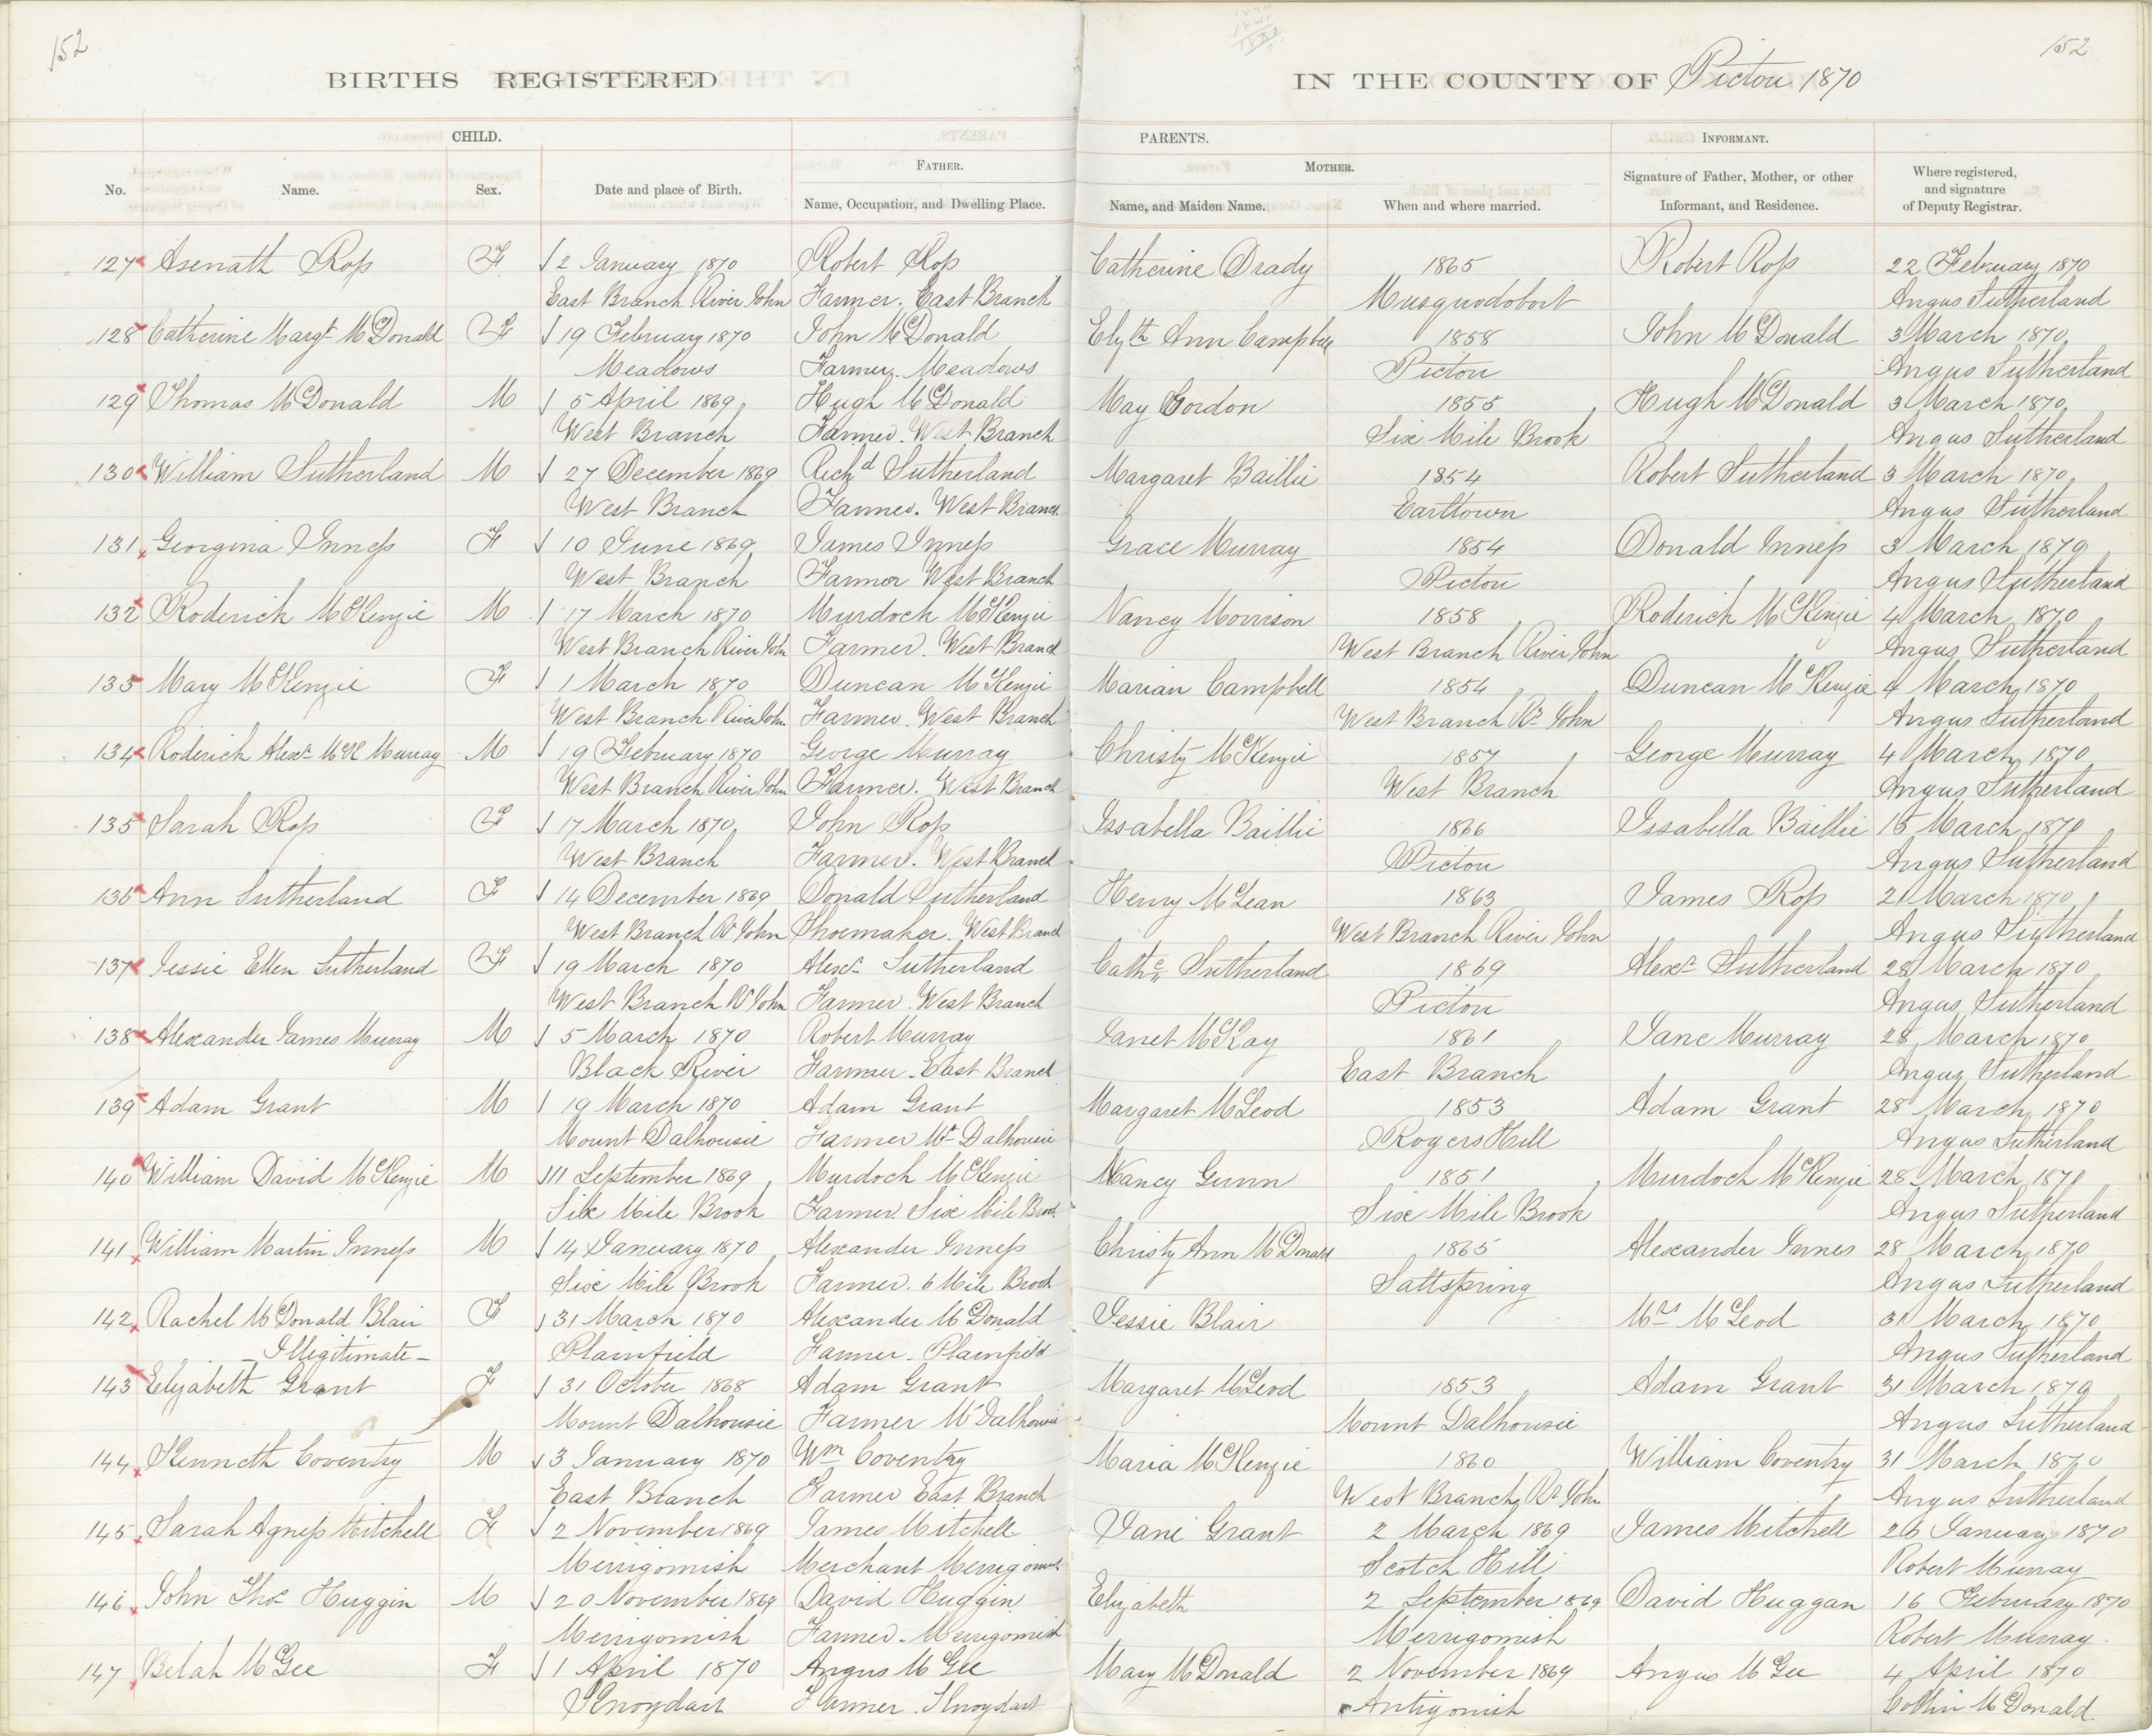 152
152
BIRTHS REGISTERED
IN THE COUNTY OF Pictou 1870
CHILD.
PARENTS.
INFORMANT.
FATHER.
MOTHER.
No.
Name.
Sex.
Date and place of Birth.
Name, Occupation, and Dwelling Place.
Name, and Maiden Name.
When and where married.
Signature of Father, Mother, or other
Informant, and Residence.
Where registered,
and signature
of Deputy Registrar.
127 Asenath Ross F 2 January 1870 Robert Ross Catherine Drady 1865 Robert Ross 22 February 1870
East Branch River John Farmer. East Branch Musquodoboit Angus Sutherland
128 Catherine Margt McDonald F 19 February 1870 John McDonald Elyth Ann Campbell 1858 John McDonald 3 March 1870
Meadows Farmer. Meadows Pictou Angus Sutherland
129 Thomas McDonald M 5 April 1869 Hugh McDonald May Gordon 1855 Hugh McDonald 3 March 1870
West Branch Farmer. West Branch Six Mile Brook Angus Sutherland
130 William Sutherland M 27 December 1869 Richd Sutherland Margaret Baillie 1854 Robert Sutherland 3 March 1870
West Branch Farmer. West Branch Earltown Angus Sutherland
131 Georgina Inness F 10 June 1869 James Inness Grace Murray 1854 Donald Inness 3 March 1870
West Branch Farmer West Branch Pictou Angus Sutherland
132 Roderick McKenzie M 17 March 1870 Murdock McKenzie Nancy Morrison 1858 Roderick McKenzie 4 March 1870
West Branch River John Farmer. West Branch West Branch River John Angus Sutherland
133 Mary McKenzie F 1 March 1870 Duncan McKenzie Marian Campbell 1854 Duncan McKenzie 4 March 1870
West Branch River John Farmer. West Branch West Branch Rr John Angus Sutherland
134 Roderick Alexr McK Murray M 19 February 1870 George Murray Christy McKenzie 1857 George Murray 4 March 1870
West Branch River John Farmer. West Branch West Branch Angus Sutherland
135 Sarah Ross F 17 March 1870 John Ross Issabella Baillie 1866 Issabella Baillie 15 March 1870
West Branch Farmer. West Branch Pictou Angus Sutherland
136 Ann Sutherland F 14 December 1869 Donald Sutherland Henry McLean 1863 James Ross 21 March 1870
West Branch Rr John Shoemaker. West Branch West Branch River John Angus Sutherland
137 Jessie Ellen Sutherland F 19 March 1870 Alexr Sutherland Cathe Sutherland 1869 Alexr Sutherland 28 March 1870
West Branch Rr John Farmer. West Branch Pictou Angus Sutherland
138 Alexander James Murray M 5 March 1870 Robert Murray Janet McKay 1861 Jane Murray 28 March 1870
Black River Farmer. East Branch East Branch Angus Sutherland
139 Adam Grant M 19 March 1870 Adam Grant Margaret McLeod 1853 Adam Grant 28 March 1870
Mount Dalhousie Farmer Mt Dalhousie Rogers Hill Angus Sutherland
140 William David McKenzie M 11 September 1869 Murdoch McKenzie Nancy Gunn 1851 Murdoch McKenzie 28 March 1870
Six Mile Brook Farmer. Six Mile Brook Six Mile Brook Angus Sutherland
141 William Martin Inness M 14 January 1870 Alexander Inness Christy Ann McDonald 1865 Alexander Innes 28 March 1870
Six Mile Brook Farmer. 6 Mile Brook Saltspring Angus Sutherland
142 Rachel McDonald Blair F 31 March 1870 Alexander McDonald Jessie Blair Mrs McLeod 31 March 1870
– Illegitimate – Plainfield Farmer. Plainfield Angus Sutherland
143 Elizabeth Grant F 31 October 1868 Adam Grant Margaret McLeod 1853 Adam Grant 31 March 1870
Mount Dalhousie Farmer Mt Dalhousie Mount Dalhousie Angus Sutherland
144 Kenneth Coventry M 3 January 1870 Wm Coventry Maria McKenzie 1860 William Coventry 31 March 1870
East Branch Farmer East Branch West Branch Rr John Angus Sutherland
145 Sarah Agness Mitchell F 2 November 1869 James Mitchell Jane Grant 2 March 1869 James Mitchell 26 January 1870
Merrigomish Merchant Merrigomish Scotch Hill Robert Murray
146 John Thos Huggin M 20 November 1869 David Huggin Elizabeth 2 September 1869 David Huggan 16 February 1870
Merrigomish Farmer. Merrigomish Merrigomish Robert Murray
147 Belah McGee F 1 April 1870 Angus McGee Mary McDonald 2 November 1869 Angus McGee 4 April 1870
Knoydart Farmer. Knoydart Antigonish Collin McDonald